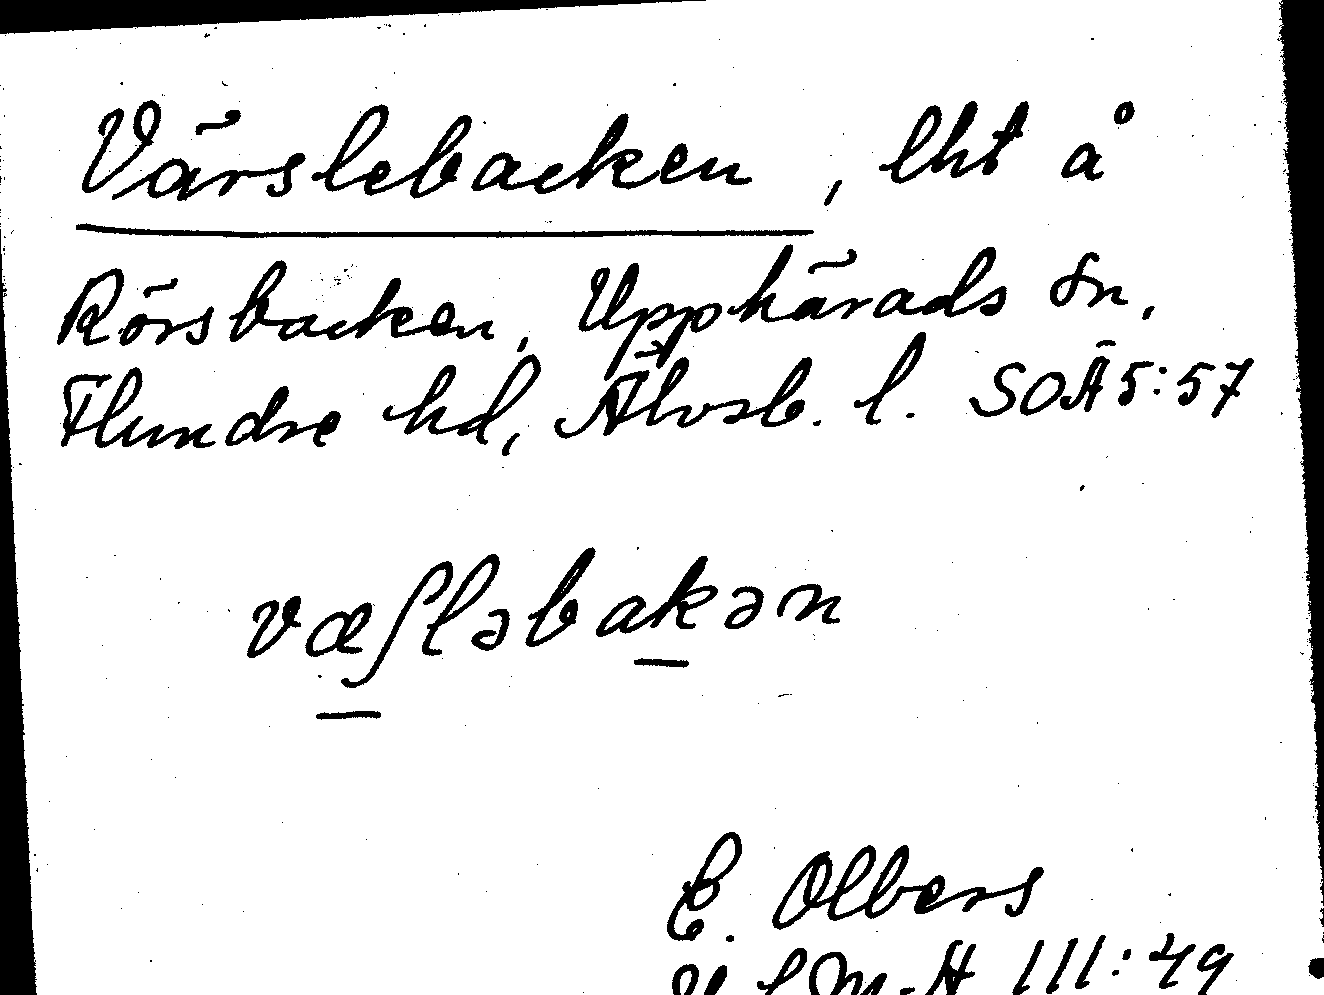 Värslebacken, lht å
Rörsbacken, Upphärads sn,
Flundre hd, Älvsb. l. SOÄ 5:57
væʃləbakən
E. Olbers
III:49